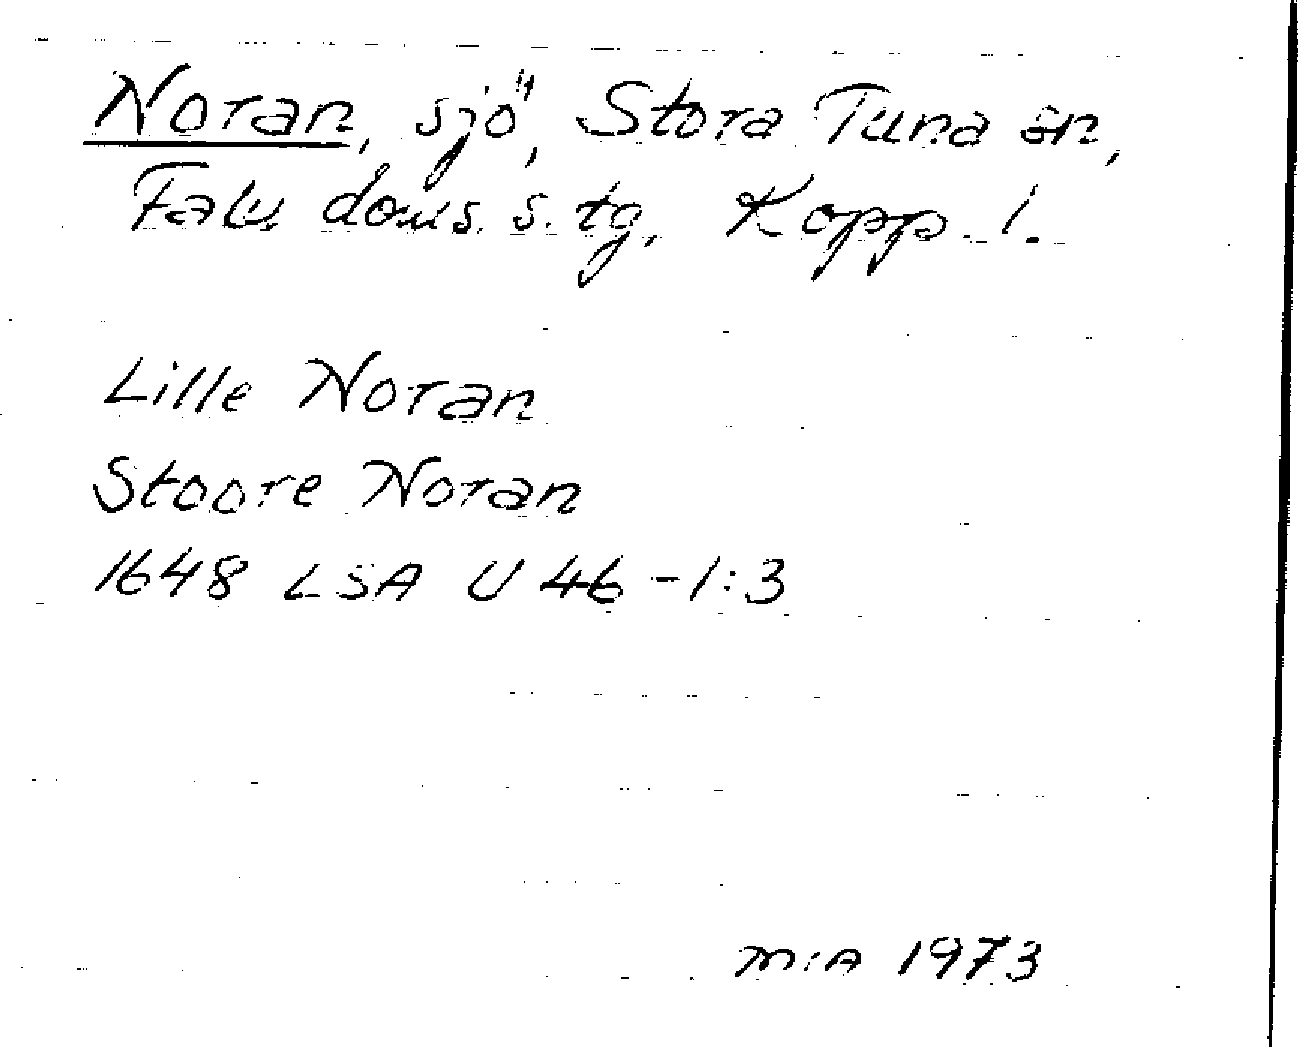 Noran, sjö, Stora Tuna sn,
Falu doms. s. tg, Kopp. l.
Lille Noran
Stoore Noran
1648 LSA U 46-1:3
M:A 1973